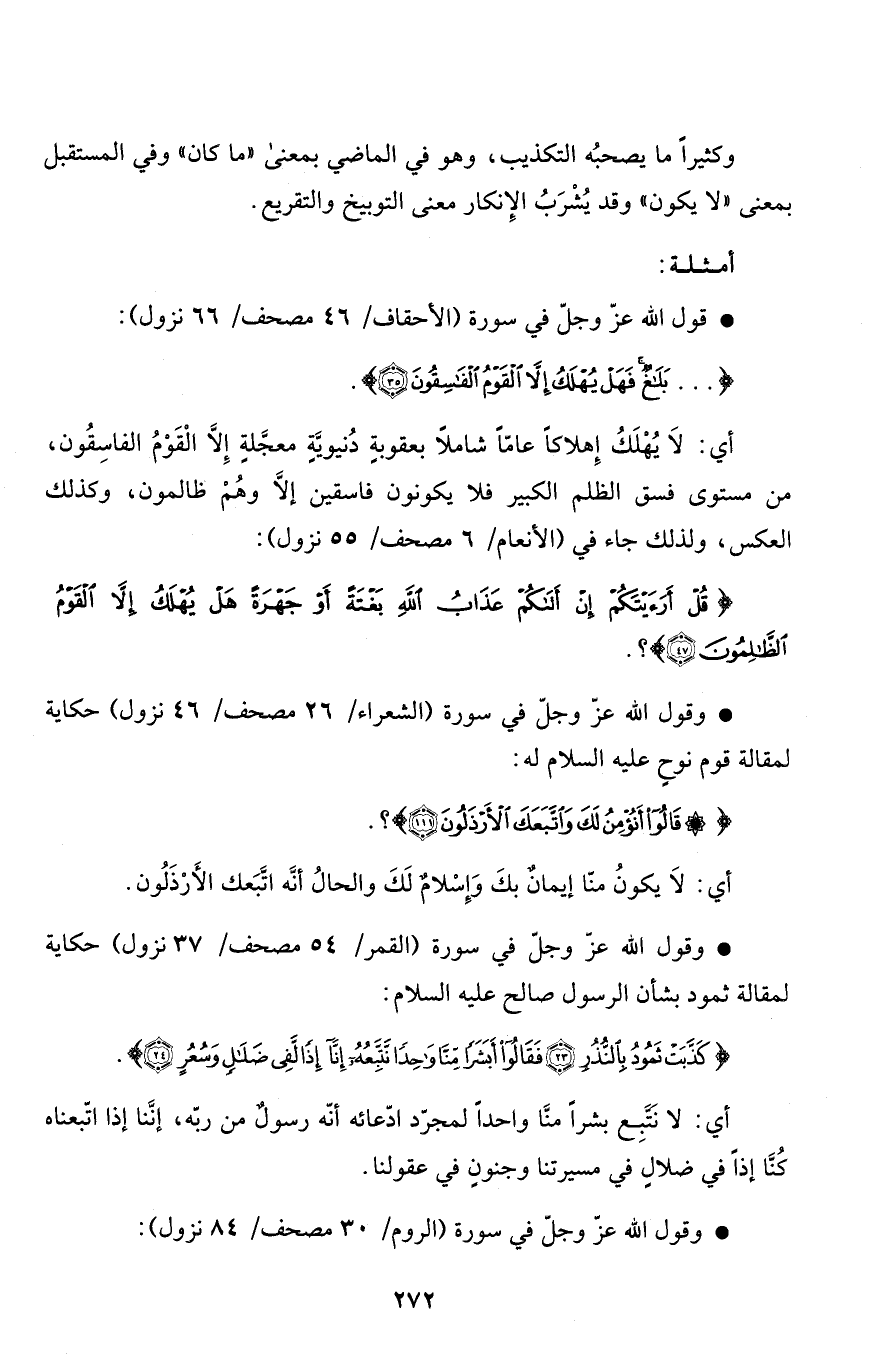 وكثيراً ما يصحبُه التكذيب، وهو في الماضي بمعنىٰ «ما كان» وفي المستقبل
بمعنى «لا يكون» وقد يُشْرَبُ الإنكار معنى التوبيخ والتقريع.
أمـثـلـة:
● قول الله عزّ وجلّ في سورة (الأحقاف/ ٤٦ مصحف/ ٦٦ نزول):
﴿... بَلَٰغٌۚ فَهَلْ يُهْلَكُ إِلَّا ٱلْقَوْمُ ٱلْفَٰسِقُونَ ۝٣٥﴾.
أي: لَا يُهْلَكُ إهلاكاً عامّاً شاملاً بعقوبةٍ دُنيويَّةٍ معجَّلةٍ إلَّا الْقَوْمُ الفاسِقُون،
من مستوى فسق الظلم الكبير فلا يكونون فاسقين إلَّا وهُمْ ظالمون، وكذلك
العكس، ولذلك جاء في (الأنعام/ ٦ مصحف/ ٥٥ نزول):
﴿قُلْ أَرَءَيْتَكُمْ إِنْ أَتَىٰكُمْ عَذَابُ ٱللَّهِ بَغْتَةً أَوْ جَهْرَةً هَلْ يُهْلَكُ إِلَّا ٱلْقَوْمُ
ٱلظَّٰلِمُونَ ۝٤٧﴾؟.
● وقول الله عزّ وجلّ في سورة (الشعراء/ ٢٦ مصحف/ ٤٦ نزول) حكاية
لمقالة قوم نوحٍ عليه السلام له:
﴿۞ قَالُوٓا۟ أَنُؤْمِنُ لَكَ وَٱتَّبَعَكَ ٱلْأَرْذَلُونَ ۝١١١﴾؟.
أي: لَا يكونُ منّا إيمانٌ بكَ وَإِسْلامٌ لَكَ والحالُ أنَّه اتَّبَعك الأَرْذَلُون.
● وقول الله عزّ وجلّ في سورة (القمر/ ٥٤ مصحف/ ٣٧ نزول) حكاية
لمقالة ثمود بشأن الرسول صالح عليه السلام:
﴿كَذَّبَتْ ثَمُودُ بِٱلنُّذُرِ ۝٢٣ فَقَالُوٓا۟ أَبَشَرًا مِّنَّا وَٰحِدًا نَّتَّبِعُهُۥٓ إِنَّآ إِذًا لَّفِى ضَلَٰلٍ وَسُعُرٍ ۝٢٤﴾.
أي: لا نَتَّبِع بشراً منَّا واحداً لمجرّد ادّعائه أنّه رسولٌ من ربّه، إنَّنا إذا اتّبعناه
كُنَّا إذاً في ضلالٍ في مسيرتنا وجنونٍ في عقولنا.
● وقول الله عزّ وجلّ في سورة (الروم/ ٣٠ مصحف/ ٨٤ نزول):
٢٧٢